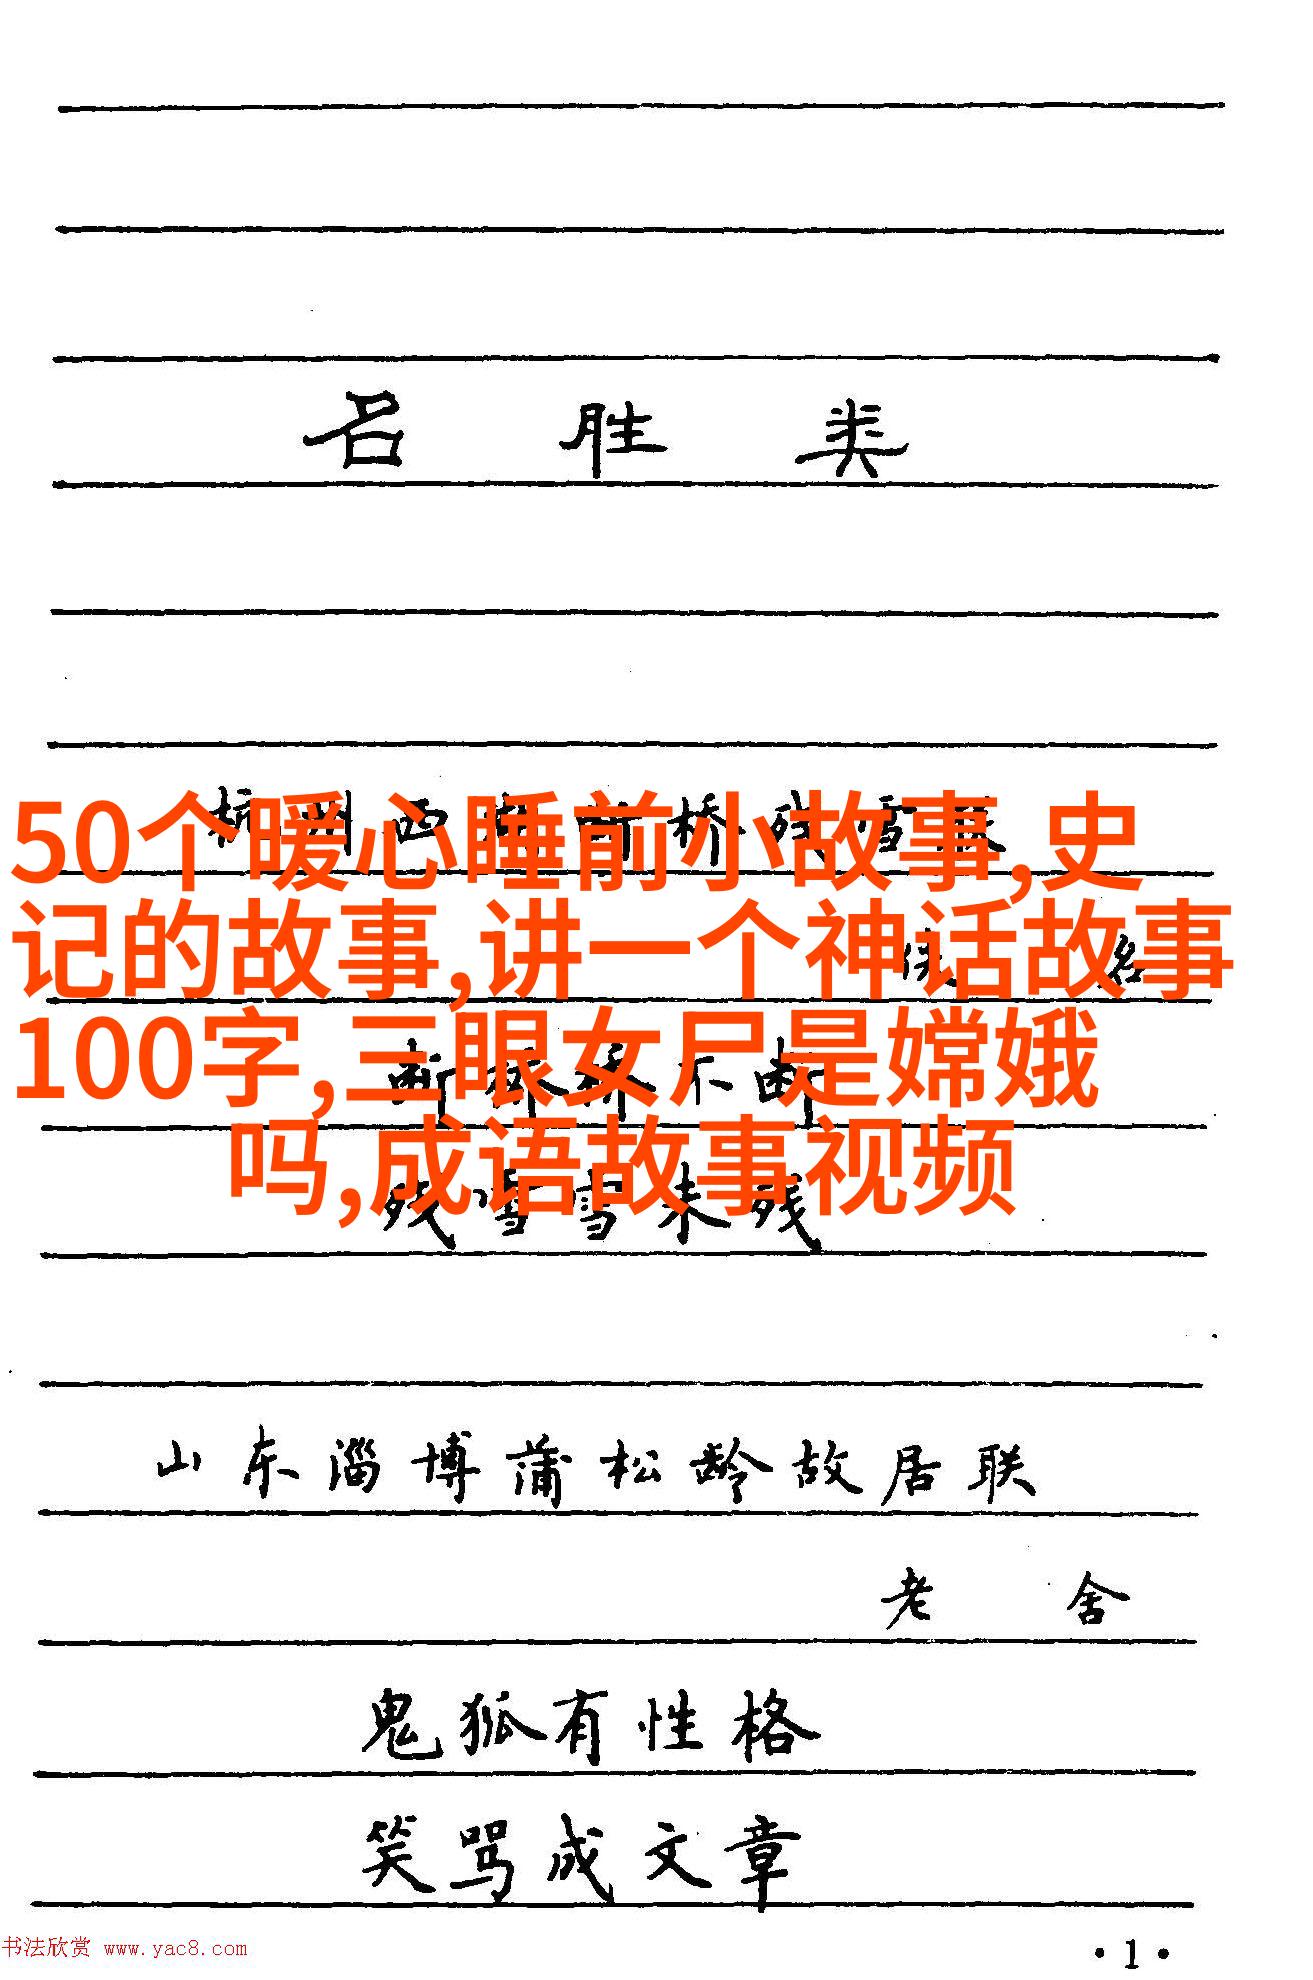 名胜类
杭州西湖断桥残雪联
50个暖心睡前小故事,史
记的故事,讲一个神话故事
100字,三眼女尸是嫦娥
吗,成语故事视频
断桥桥不断
残雪雪未残
山东淄博蒲松龄故居联
老舍
鬼狐有性格
笑骂成文章
书法欣赏 www.yac8.com
·1·